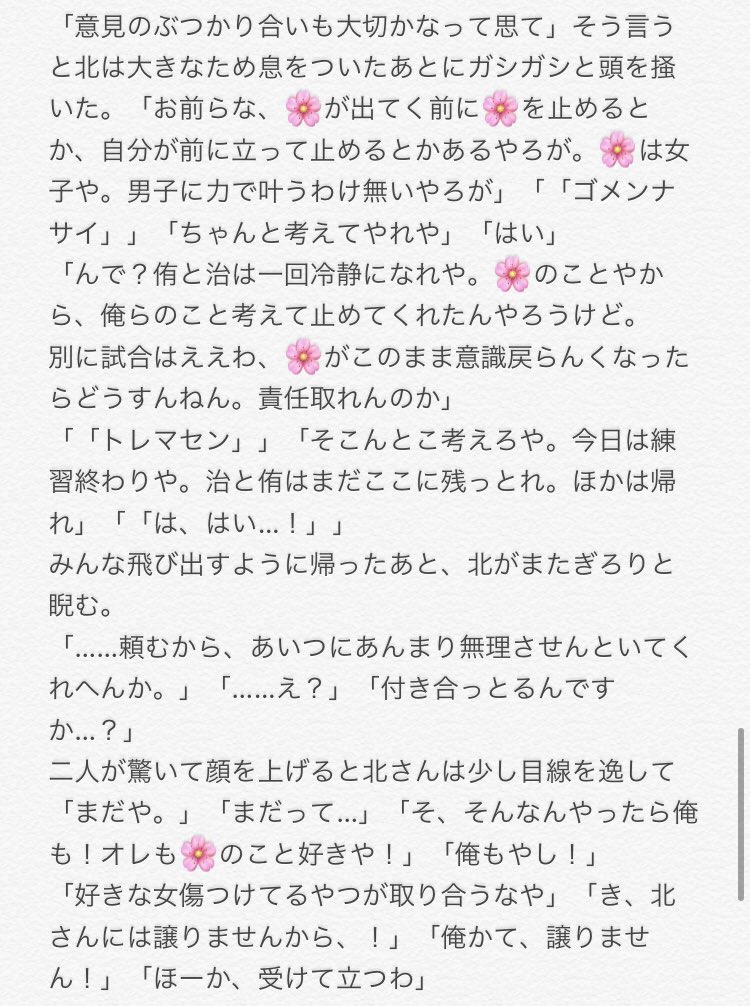 「意見のぶつかり合いも大切かなって思て」そう言う
と北は大きなため息をついたあとにガシガシと頭を掻
いた。「お前らな、🌸が出てく前に🌸を止めると
か、自分が前に立って止めるとかあるやろが。🌸は女
子や。男子に力で叶うわけ無いやろが」「「ゴメンナ
サイ」」「ちゃんと考えてやれや」「はい」
「んで？侑と治は一回冷静になれや。🌸のことやか
ら、俺らのこと考えて止めてくれたんやろうけど。
別に試合はええわ、🌸がこのまま意識戻らんくなった
らどうすんねん。責任取れんのか」
「「トレマセン」」「そこんとこ考えろや。今日は練
習終わりや。治と侑はまだここに残っとれ。ほかは帰
れ」「「は、はい…！」」
みんな飛び出すように帰ったあと、北がまたぎろりと
睨む。
「……頼むから、あいつにあんまり無理させんといてく
れへんか。」「……え？」「付き合っとるんです
か…？」
二人が驚いて顔を上げると北さんは少し目線を逸して
「まだや。」「まだって…」「そ、そんなんやったら俺
も！オレも🌸のこと好きや！」「俺もやし！」
「好きな女傷つけてるやつが取り合うなや」「き、北
さんには譲りませんから、！」「俺かて、譲りませ
ん！」「ほーか、受けて立つわ」